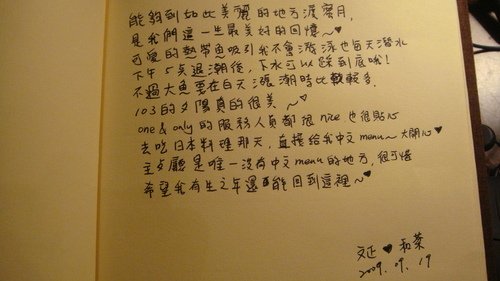 能夠到如此美麗的地方渡蜜月,
是我們這一生最美好的回憶~♥
可愛的熱帶魚吸引我不會游泳也每天潛水
下午5點退潮後,下水可以踩到底哦!
不過大魚要在白天漲潮時比較多.
103的夕陽真的很美 ~♥
one & only 的服務人員都很nice也很貼心
去吃日本料理那天,直接給我中文menu~大開心♥
主餐廳是唯一沒有中文menu的地方,很可惜
希望我有生之年還能回到這裡~♥
文正 ♥ 和
2009. 09. 19